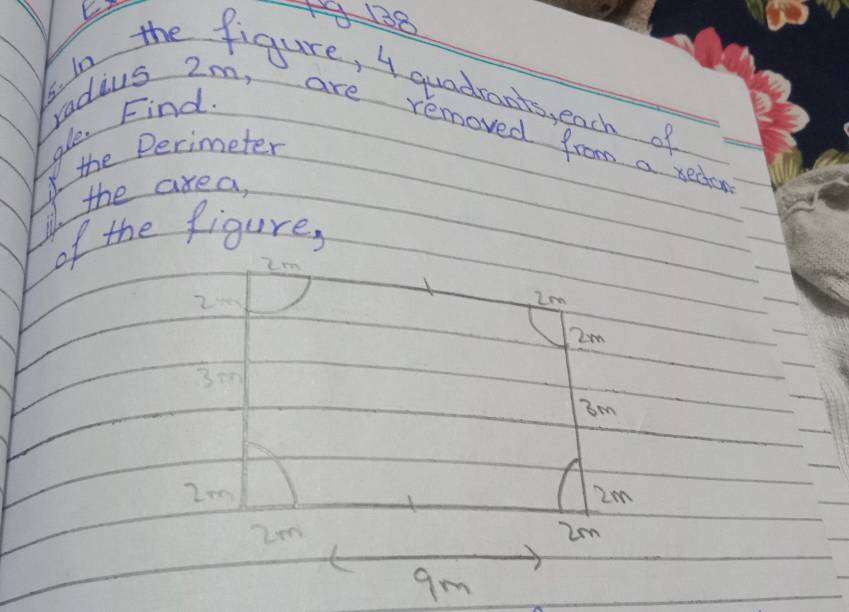 pg 138
5. In the figure, 4 quadrants, each of
radius 2m, are removed from a rectan-
gle. Find.
i). the Perimeter
ii). the area,
of the figure,
2m
2m
2m
2m
3m
3m
2m
2m
2m
2m
9m